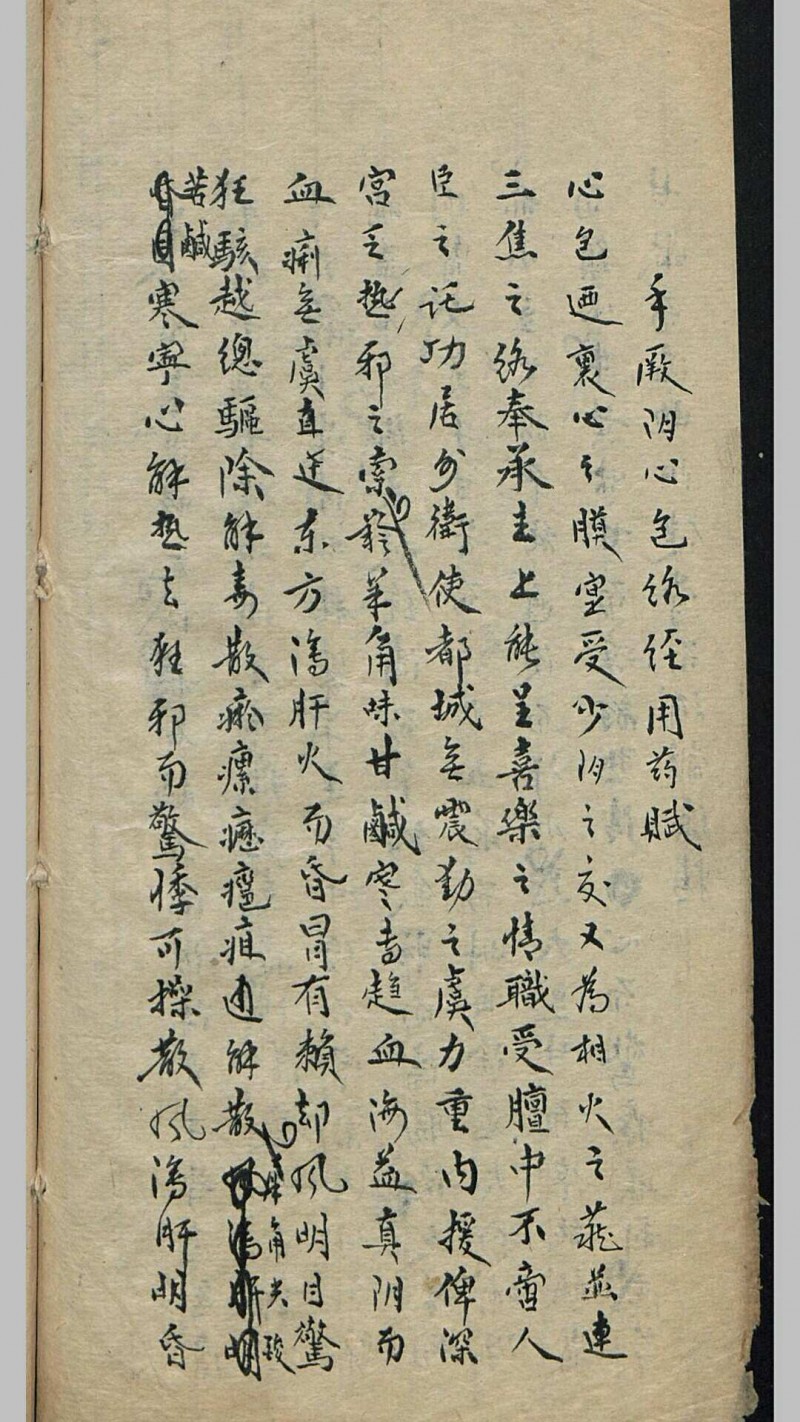 手厥阴心包络经用药赋
心包迺裹心之膜室受少阴之交又为相火之藏並連
三焦之络奉承主上能呈喜樂之情職受膻中不啻人
臣之託功居外衛使都城無震動之虞力重内援俾深
宫乏热邪之索羚羊角味甘鹹寒专趋血海益真阴而
血痢無虞直達东方瀉肝火而昏冒有賴却风明目驚
狂駭越總驅除解毒散瘀瘰癧瘟疽通解散
犀角尖
苦鹹
寒寧心解热去狂邪而驚悸可操散风瀉肝明昏